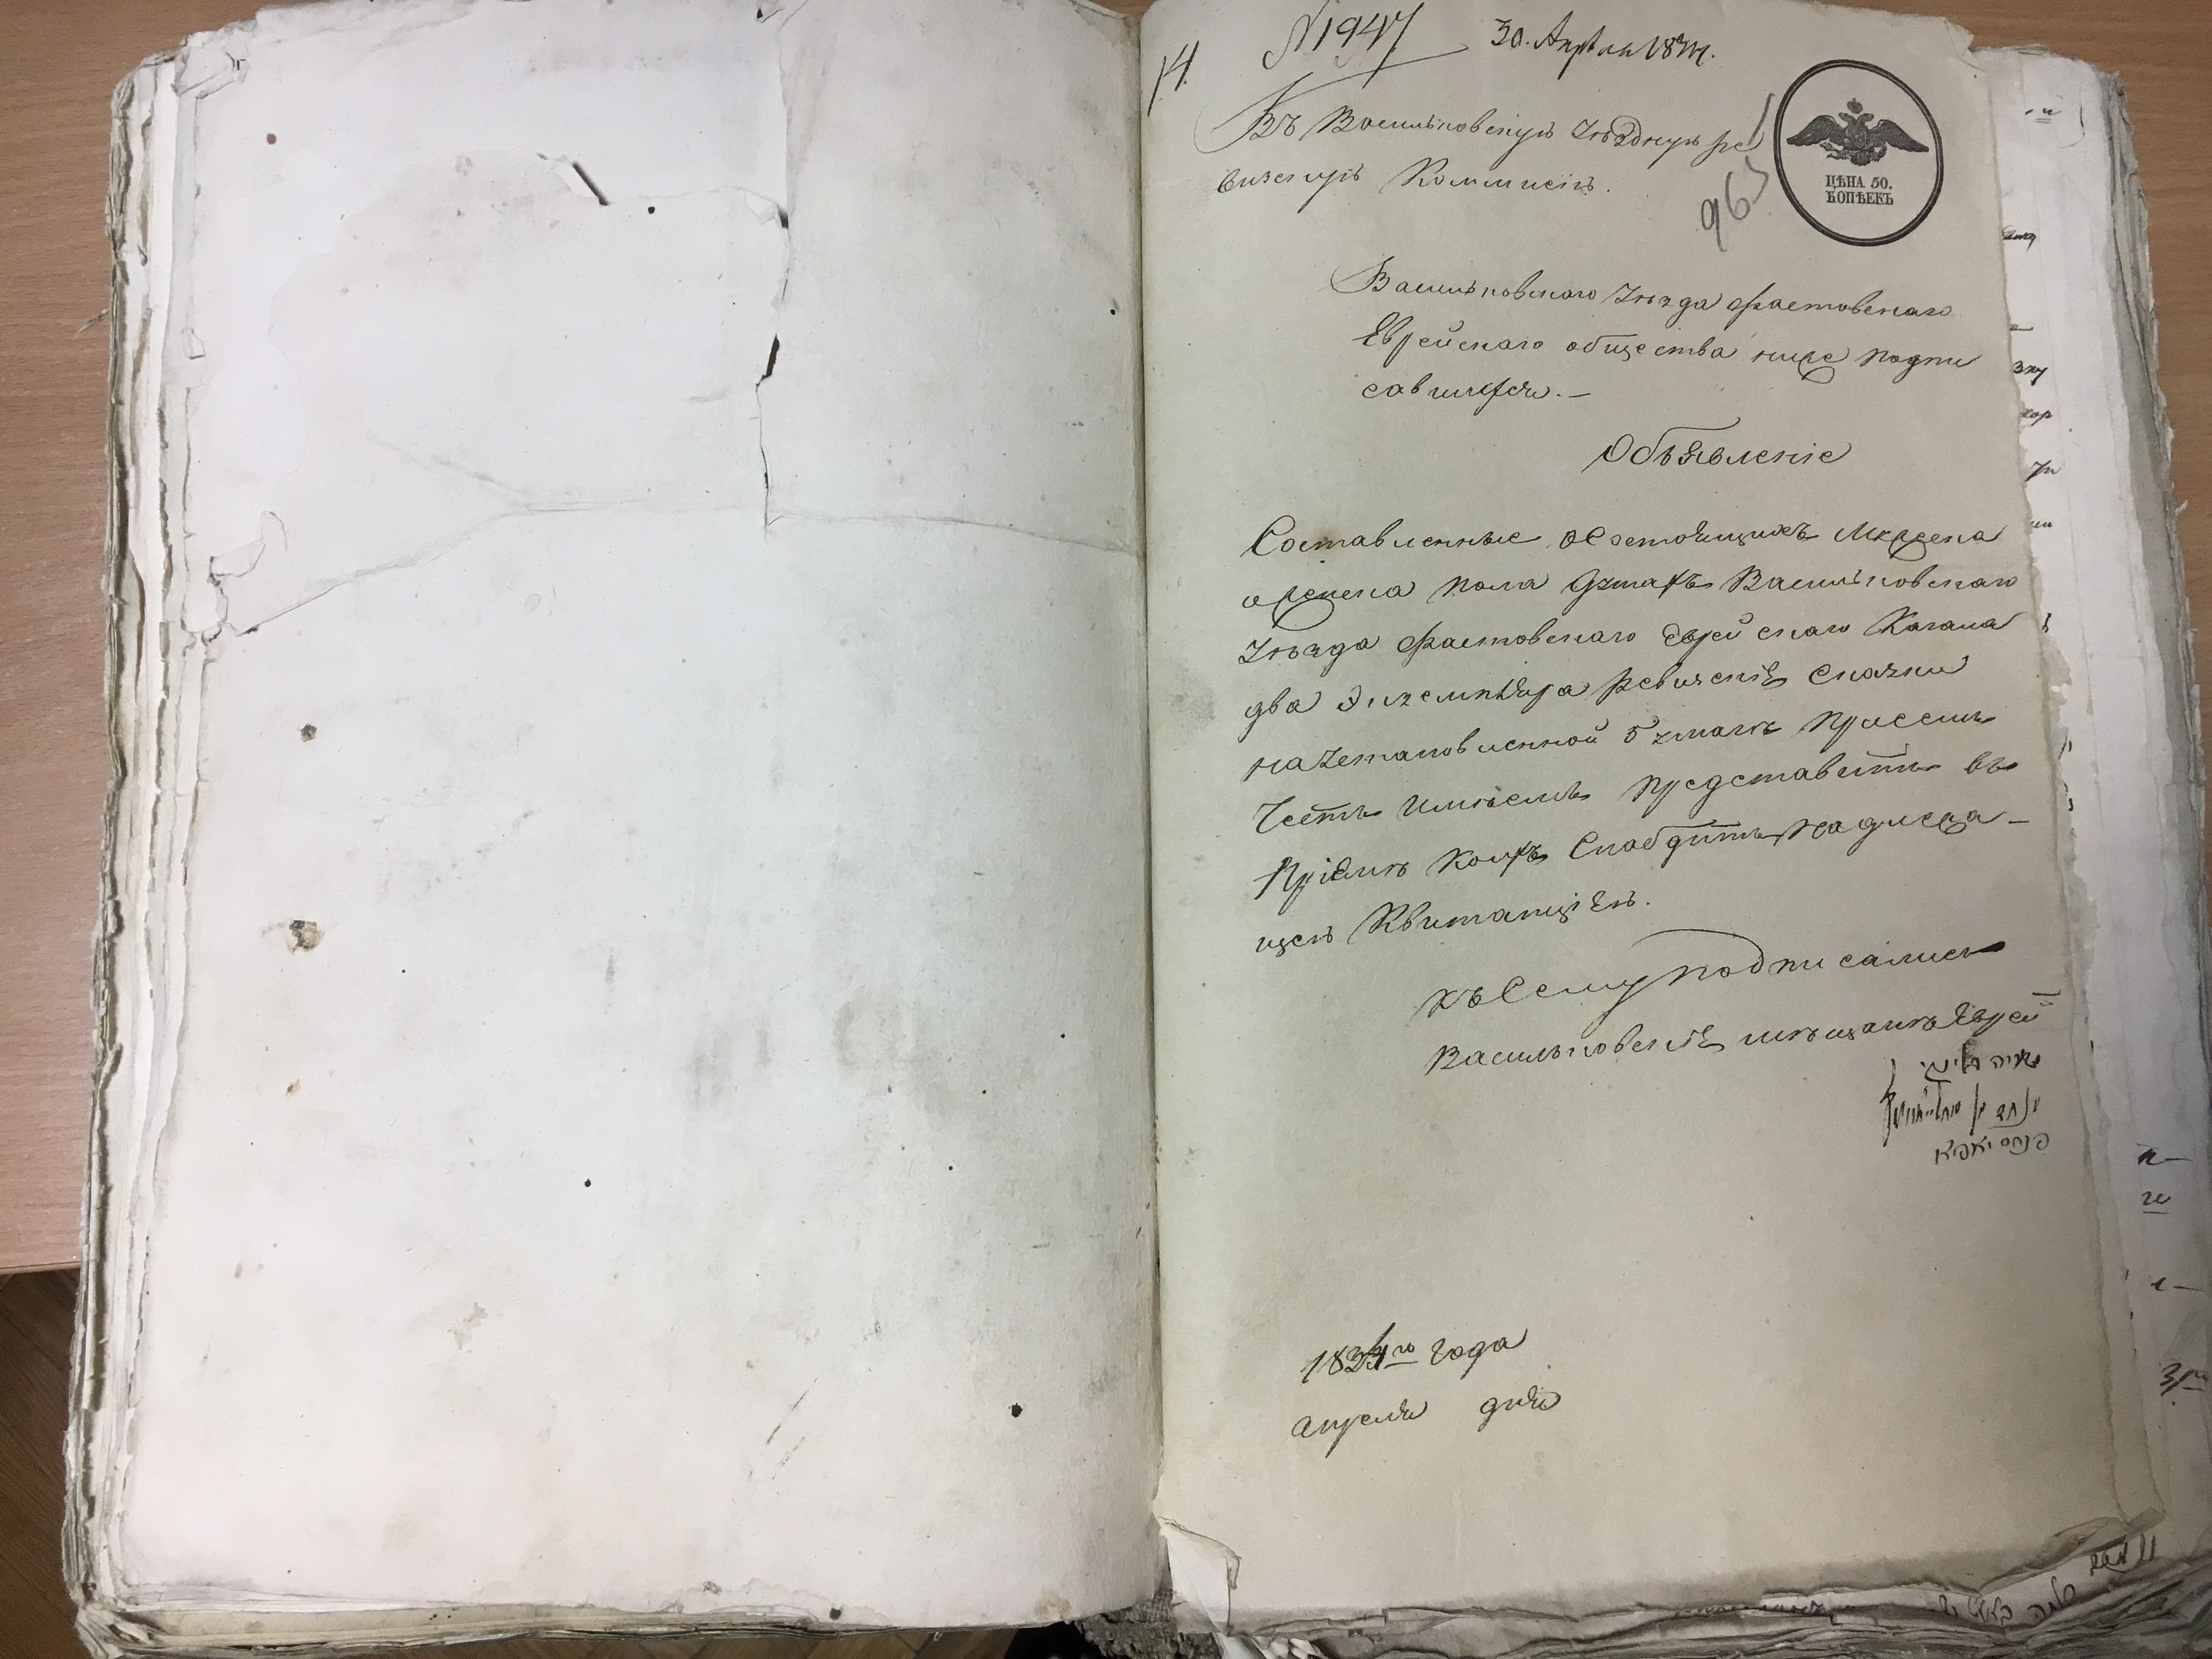 14.
№ 1947
30. Апрѣля 1834.
Въ Васильковскую Уѣздную ре
визскую Коммисію.
965
ЦѢНА 50.
КОПѢЕКЪ
Васильковскаго Уѣзда Фастовскаго
Еврейскаго общества ниже подпи
савшихся.-
Объявленіе
Составленные о состоящихъ мужеска
и женска пола душахъ Васильковскаго
Уѣзда Фастовскаго Еврейскаго Кагала
два Экземпляра ревизскіе сказки
на установленной бумагѣ при семъ
Честь имѣемъ представить въ
Пріемѣ коихъ снабдить надлежа-
щею Квитанціею.
Къ Сему подписались
Васильковскіе мѣщане Евреи
פנחס
1834го года
апреля дня